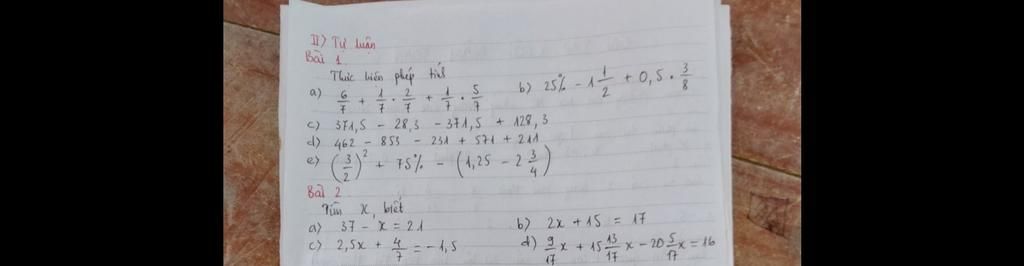 II) Tự luận
Bài 1
Thực hiện phép tính
a) 6/7 + 1/7 . 2/7 + 1/7 . 5/7 b) 25% - 1 1/2 + 0,5 . 3/8
c) 371,5 - 28,3 - 371,5 + 128,3
d) 462 - 853 - 231 + 571 + 211
e) (3/2)² + 75% - (1,25 - 2 3/4)
Bài 2
Tìm x, biết
a) 37 - x = 21 b) 2x + 15 = 17
c) 2,5x + 4/7 = -1,5 d) 9/17 x + 15 13/17 x - 20 5/17 x = 16